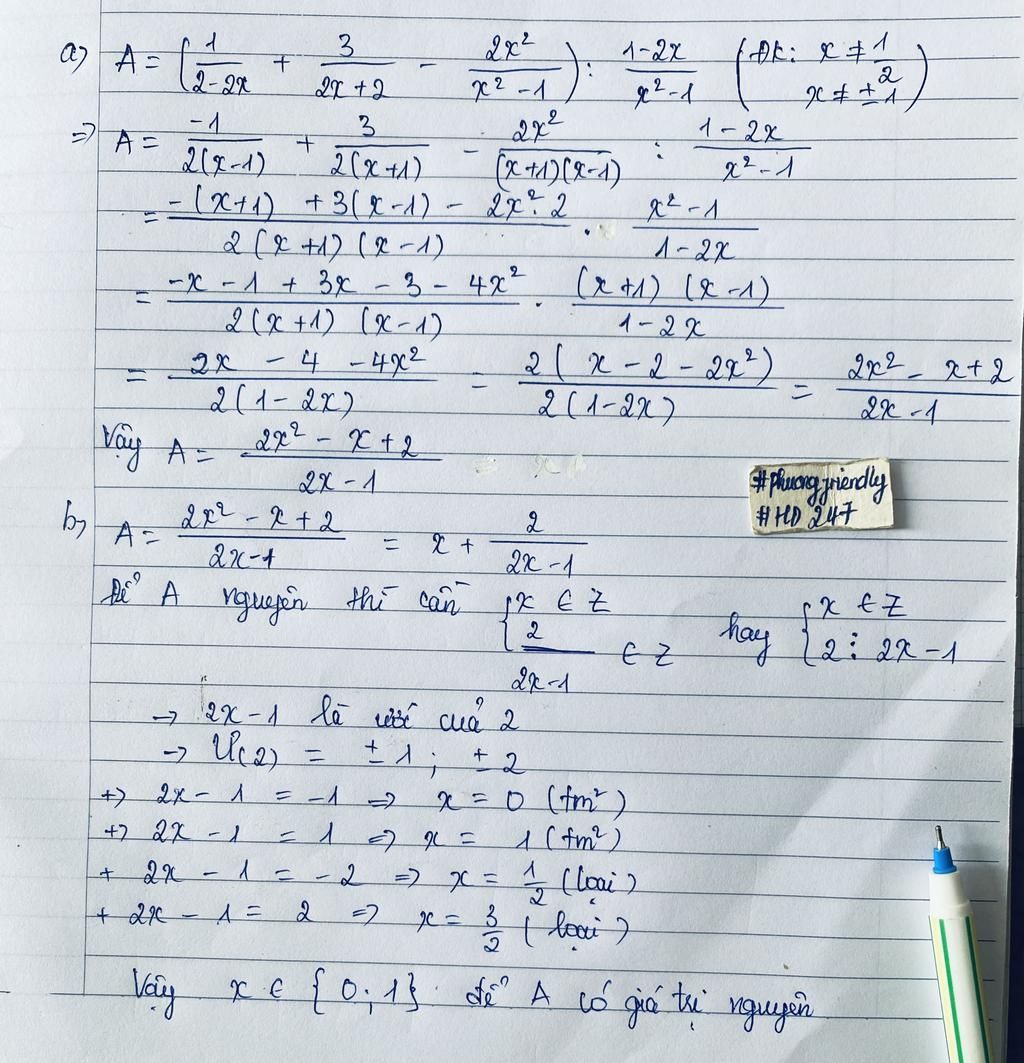 a) A = (1/(2-2x) + 3/(2x+2) - 2x²/(x²-1)) : (1-2x)/(x²-1) (ĐK: x ≠ 1/2 x ≠ ±1)
=> A = -1/(2(x-1)) + 3/(2(x+1)) - 2x²/((x+1)(x-1)) : (1-2x)/(x²-1)
= (-(x+1) + 3(x-1) - 2x².2)/(2(x+1)(x-1)) . (x²-1)/(1-2x)
= (-x - 1 + 3x - 3 - 4x²)/(2(x+1)(x-1)) . ((x+1)(x-1))/(1-2x)
= (2x - 4 - 4x²)/(2(1-2x)) = (2(x - 2 - 2x²))/(2(1-2x)) = (2x² - x + 2)/(2x-1)
Vậy A = (2x² - x + 2)/(2x-1)
#phuongfriendly
#HD 247
b) A = (2x² - x + 2)/(2x-1) = x + 2/(2x-1)
Để A nguyên thì cần { x ∈ Z 2/(2x-1) ∈ Z hay { x ∈ Z 2 ⋮ 2x-1
→ 2x-1 là ước của 2
→ Ư(2) = ±1 ; ±2
+> 2x - 1 = -1 => x = 0 (tm²)
+> 2x - 1 = 1 => x = 1 (tm²)
+ 2x - 1 = -2 => x = 1/2 (loại)
+ 2x - 1 = 2 => x = 3/2 (loại)
Vậy x ∈ {0;1} để A có giá trị nguyên